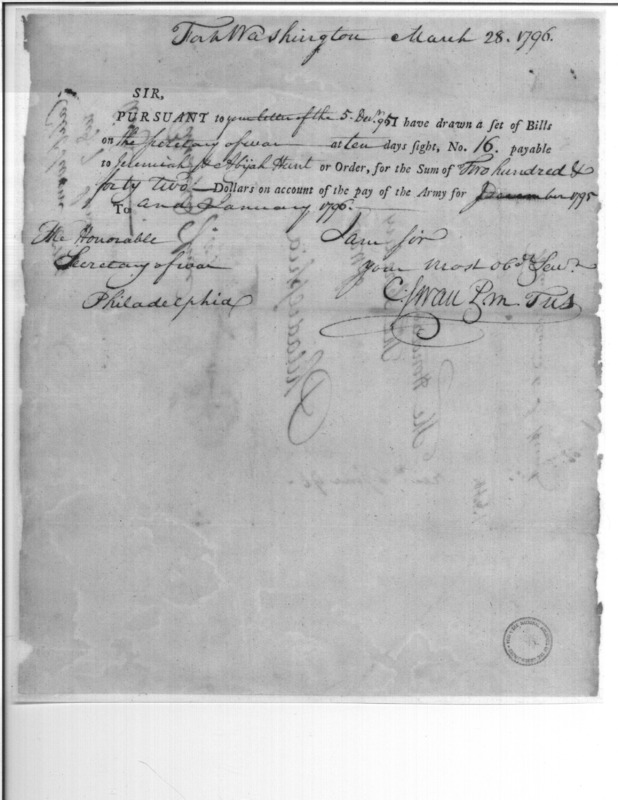 Fort Washington March 28. 1796.
SIR,
PURSUANT to your letter of the 5. Decr. 95 I have drawn a set of Bills
on the Secretary of war at ten days sight, No. 16. payable
to Jeremiah & Abijah Hunt or Order, for the Sum of Two hundred &
forty two Dollars on account of the pay of the Army for December 1795
To and January 1796.
The Honorable
Secretary of war
Philadelphia
I am Sir
your most obd. Servt.
C. Swan P.m. T US